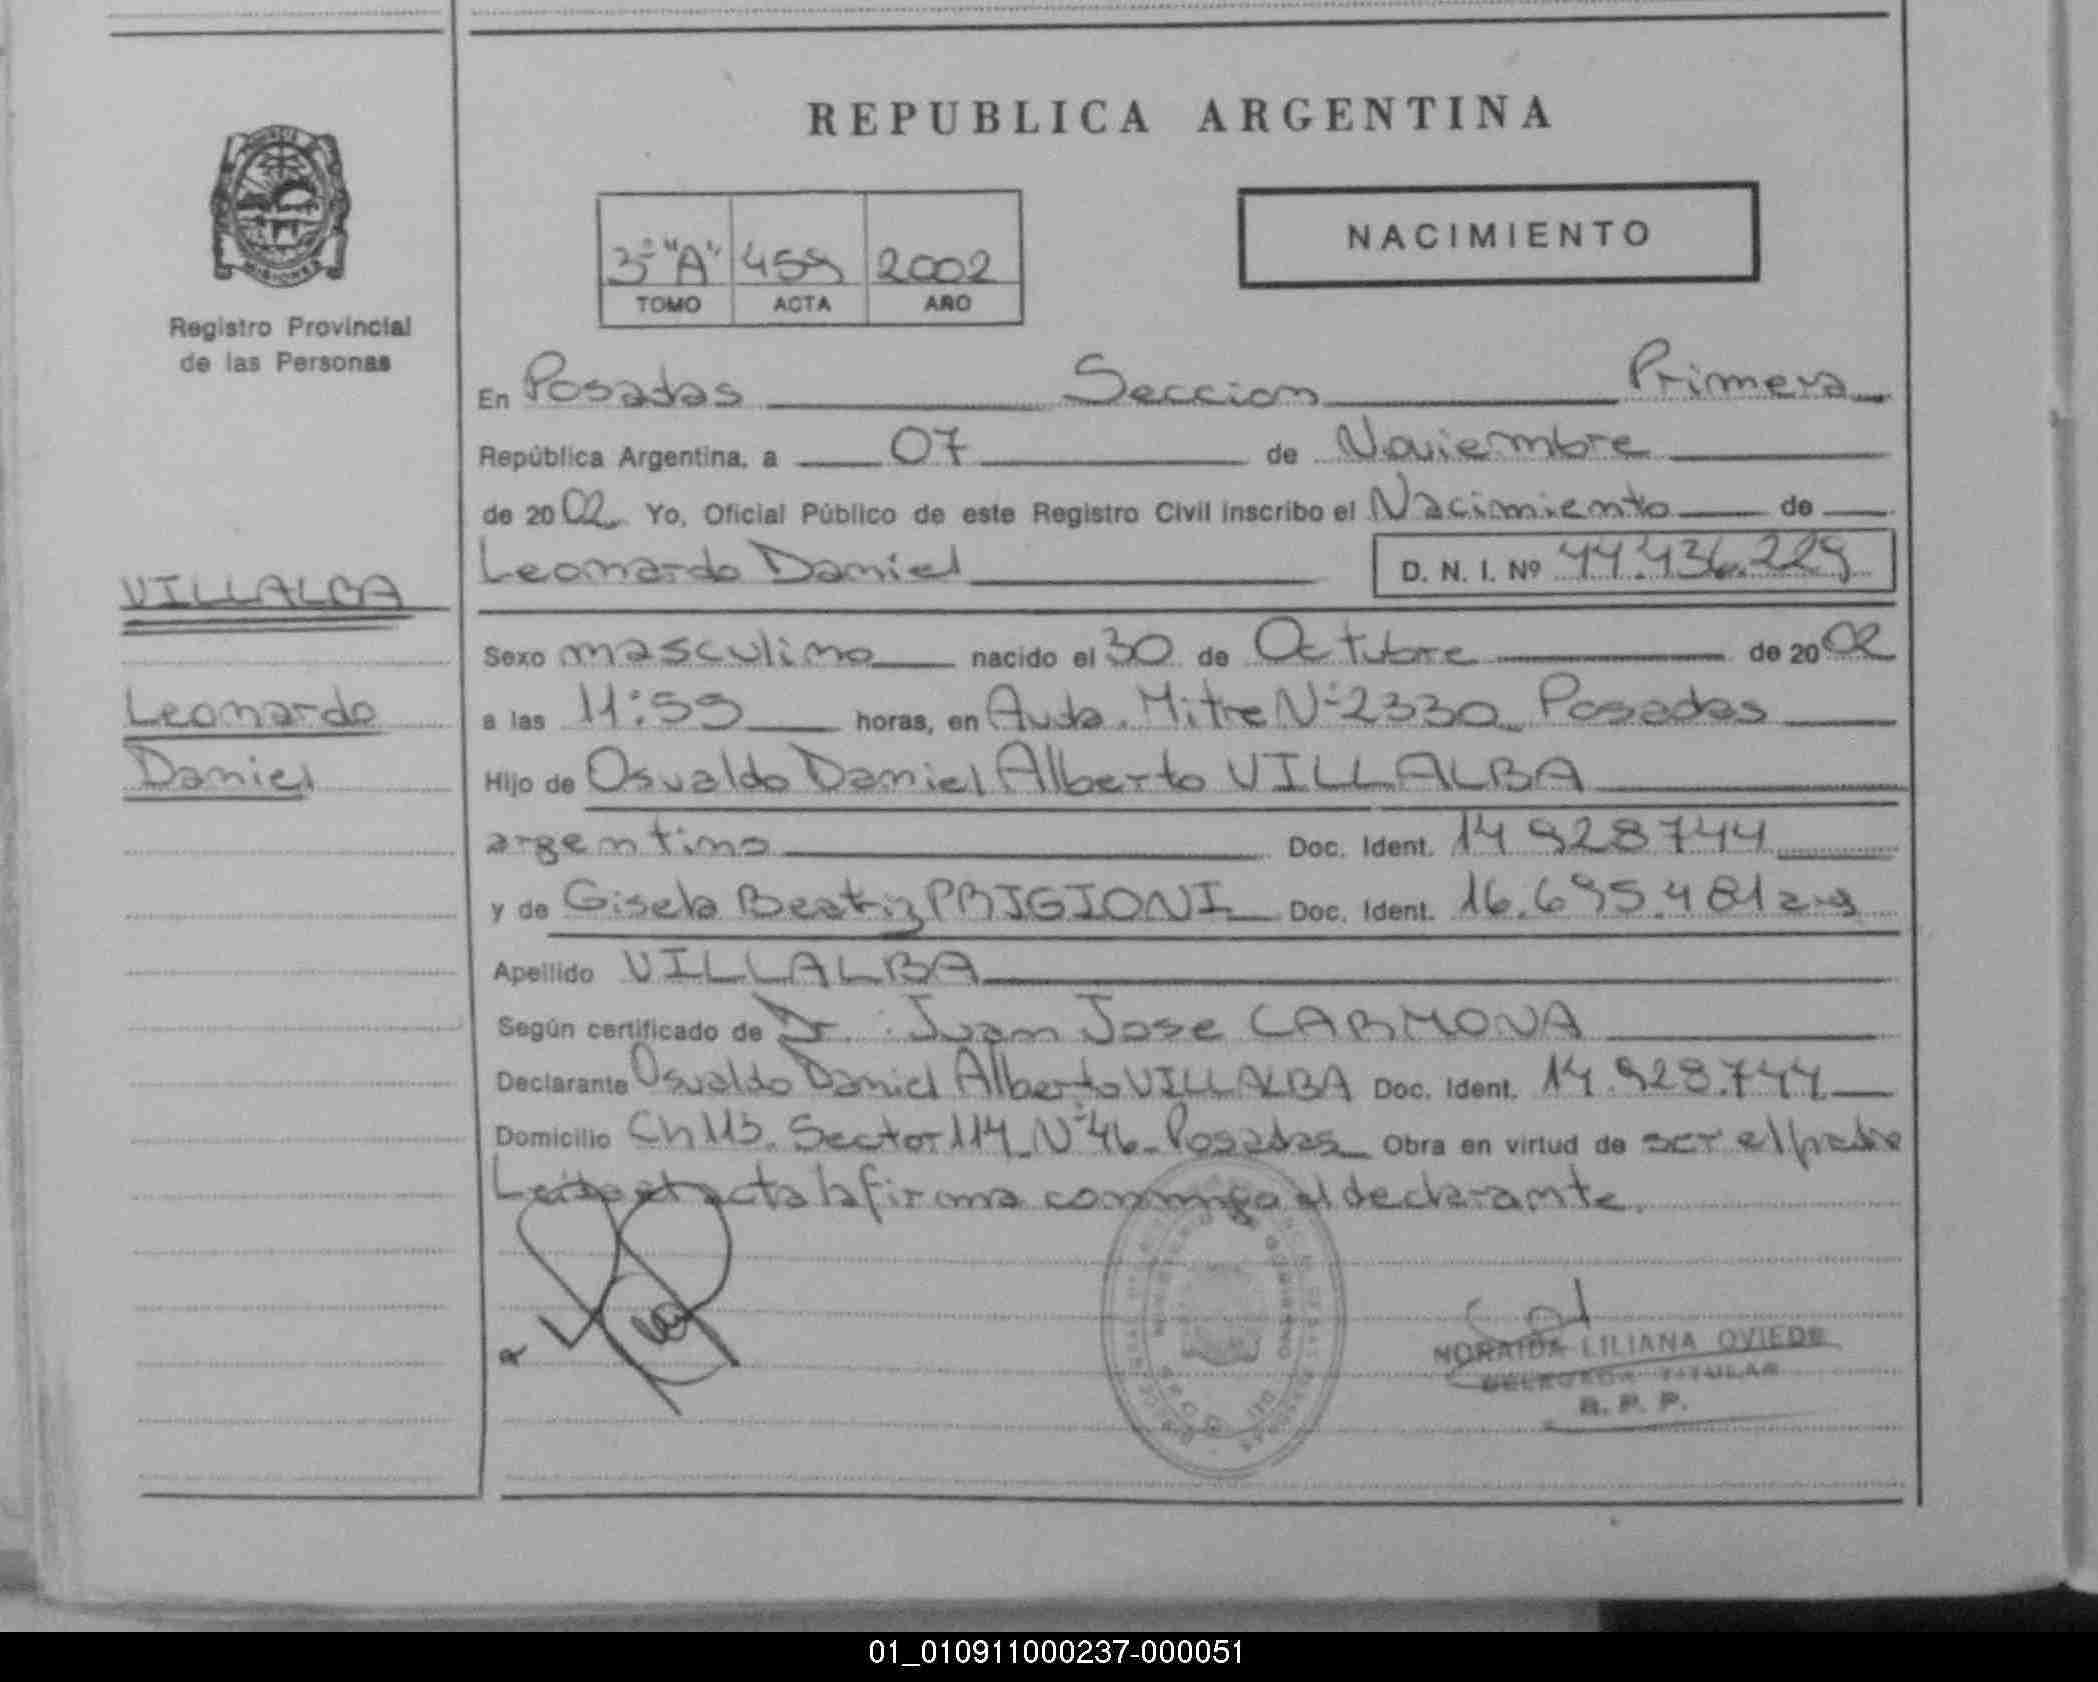 REPUBLICA ARGENTINA
NACIMIENTO
3º "A" 459 2002
TOMO ACTA AÑO
MISIONES
Registro Provincial
de las Personas
En Posadas Seccion Primera
República Argentina, a 07 de Noviembre
de 2002 Yo, Oficial Público de este Registro Civil inscribo el Nacimiento de
VILLALBA
Leonardo Daniel
D. N. I. Nº 44.436.229
Sexo masculino nacido el 30 de Octubre de 2002
Leonardo
a las 11:59 horas, en Avda. Mitre Nº 2330 Posadas
Daniel
Hijo de Osvaldo Daniel Alberto VILLALBA
argentino Doc. Ident. 14 928744
y de Gisela Beatriz PRIGIONI Doc. Ident. 16.695.481 arg
Apellido VILLALBA
Según certificado de Dr. Juan Jose CARMONA
Declarante Osvaldo Daniel Alberto VILLALBA Doc. Ident. 14.928.744
Domicilio Ch 113. Sector 114 Nº 46 Posadas Obra en virtud de ser el padre
Leida el acta la firma conmigo el declarante.
NORAIDA LILIANA OVIEDO
DELEGADA TITULAR
R. P. P.
01_010911000237-000051